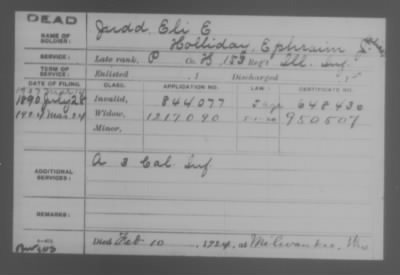 DEAD
NAME OF SOLDIER: Judd, Eli E
Holliday, Ephraim J.
SERVICE: Late rank, P Co. H, 153 Reg't Ill. Inf.
TERM OF SERVICE: Enlisted , 1 Discharged , 1
DATE OF FILING. CLASS. APPLICATION NO. LAW. CERTIFICATE NO.
1890 July 28 Invalid, 844077 648430
1924 Mar 24 Widow, 1217090 950507
Minor,
ADDITIONAL SERVICES: A 3 Cal. Inf
REMARKS:
Died Feb 10, 1924, at Milwaukee, Wis